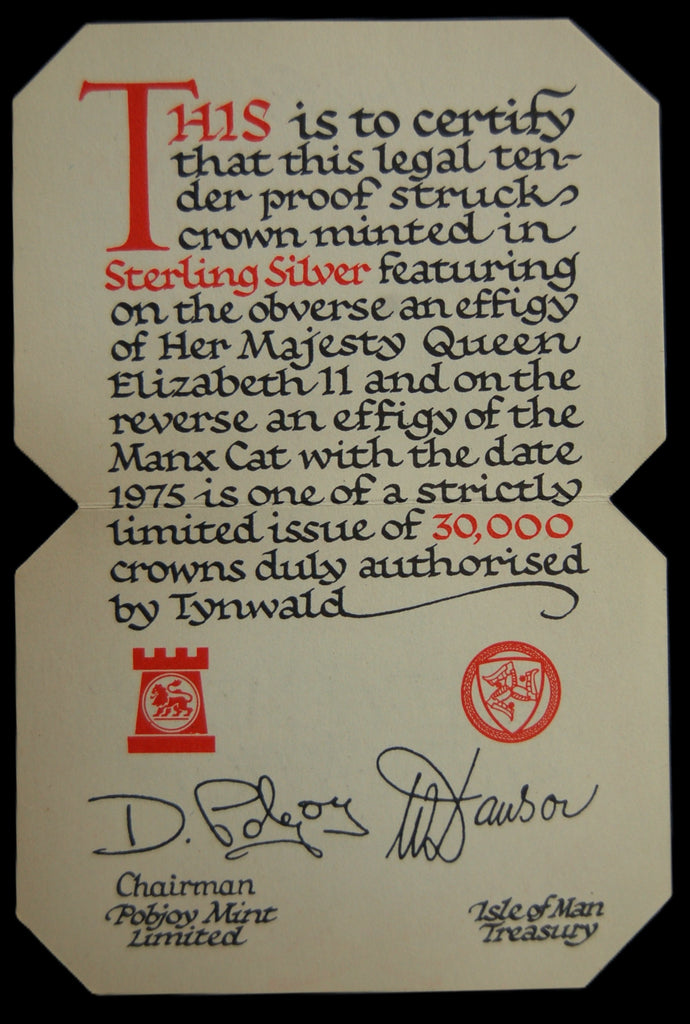 THIS is to certify
that this legal ten-
der proof struck
crown minted in
Sterling Silver featuring
on the obverse an effigy
of Her Majesty Queen
Elizabeth 11 and on the
reverse an effigy of the
Manx Cat with the date
1975 is one of a strictly
limited issue of 30,000
crowns duly authorised
by Tynwald
D. Pobjoy
Chairman
Pobjoy Mint
Limited
Isle of Man
Treasury